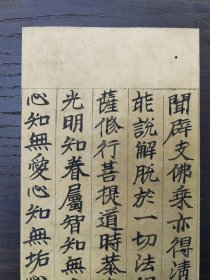 聞辟支佛乗亦得清
能說解脫於一切法
薩修行菩提道時
光明知眷屬智知無
心知無愛心知無垢心